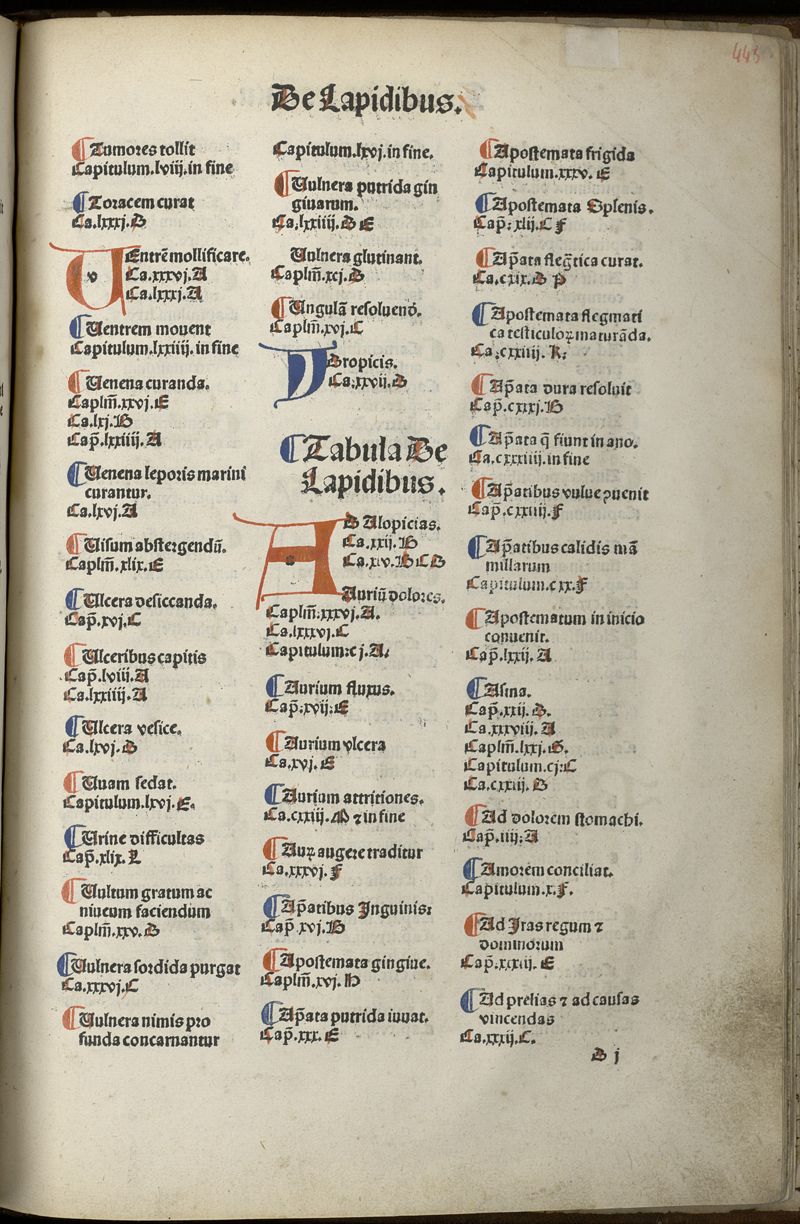 445
De Lapidibus.
Tumores tollit
Capitulum.lviij.in fine
Toracem curat
Ca.lxxxj.D
VEntrẽ mollificare.
Ca.xxxvj.A
Ca.lxxxj.A
Uentrem mouent
Capitulum.lxxiiij.in fine
Uenena curanda.
Caplm̃.xxvj.E
Ca.lxj.B
Cap̃.lxxiiij.A
Uenena leporis marini
curantur.
Ca.lxvj.A
Uisum abstergendũ.
Caplm̃.xlix.E
Ulcera desiccanda.
Cap̃.xvj.C
Ulceribus capitis
Cap̃.lviij.A
Ca.lxxiiij.A
Ulcera vesice.
Ca.lxvj.D
Uuam sedat.
Capitulum.lxvj.E.
Urine difficultas
Cap̃.xlix.L
Uultum gratum ac
niueum faciendum
Caplm̃.xxv.D
Uulnera sordida purgat
Ca.xxxvj.C
Uulnera nimis pro
funda concarnantur
Capitulum.lxvj.in fine.
Uulnera putrida gin
giuarum.
Ca.lxxiiij.D E
Uulnera glutinant.
Caplm̃.xcj.D
Ungulã resoluendo.
Caplm̃.xvj.C
YDropicis.
Ca.xxvij.D
Tabula De
Lapidibus.
AD Alopicias.
Ca.xxij.B
Ca.xlv.B C D
Auriũ dolores.
Caplm̃.xxxvj.A.
Ca.lxxxvj.C
Capitulum:cj.A.
Aurium fluxus.
Cap̃.xvij:E
Aurium vlcera
Ca.xvj.E
Aurium attritiones.
Ca.cxxiij.M ⁊ in fine
Auꝝ augere traditur
Ca.xxxvj.F
Ap̃atibus Inguinis:
Cap̃.xvj.B
Apostemata gingiue.
Caplm̃.xvj.H
Ap̃ata putrida iuuat.
Cap̃.xxx.E
Apostemata frigida
Capitulum.xxxv.E
Apostemata Splenis.
Cap̃:xlij.C F
Ap̃ata flegm̃tica curat.
Ca.cxix.D P
Apostemata flegmati
ca testiculoꝝ maturãda.
Ca:cxxiiij.K:
Ap̃ata dura resoluit
Cap̃.cxxxj.B
Ap̃ata q̃ fiunt in ano.
Ca.cxxxiiij.in fine
Ap̃atibus vulue ꝓuenit
Cap̃.cxxiiij.F
Ap̃atibus calidis mã
millarum
Capitulum.cxx.F
Apostematum in inicio
conuenit.
Cap̃.lxxij.A
Asma.
Cap̃.xxij.D.
Ca.xxxviij.A
Caplm̃.lxxj.G.
Capitulum.cj:C
Ca.cxxiij.D
Ad dolorem stomachi.
Cap̃.iiij:A
Amorem conciliat.
Capitulum.x.F.
Ad Iras regum ⁊
dominorum
Cap̃.xxxij.E
Ad prelias ⁊ ad causas
vincendas
Ca.xxxij.C.
D j